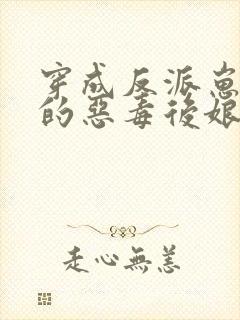 穿成反派崽
的惡毒後娘
走心無恙